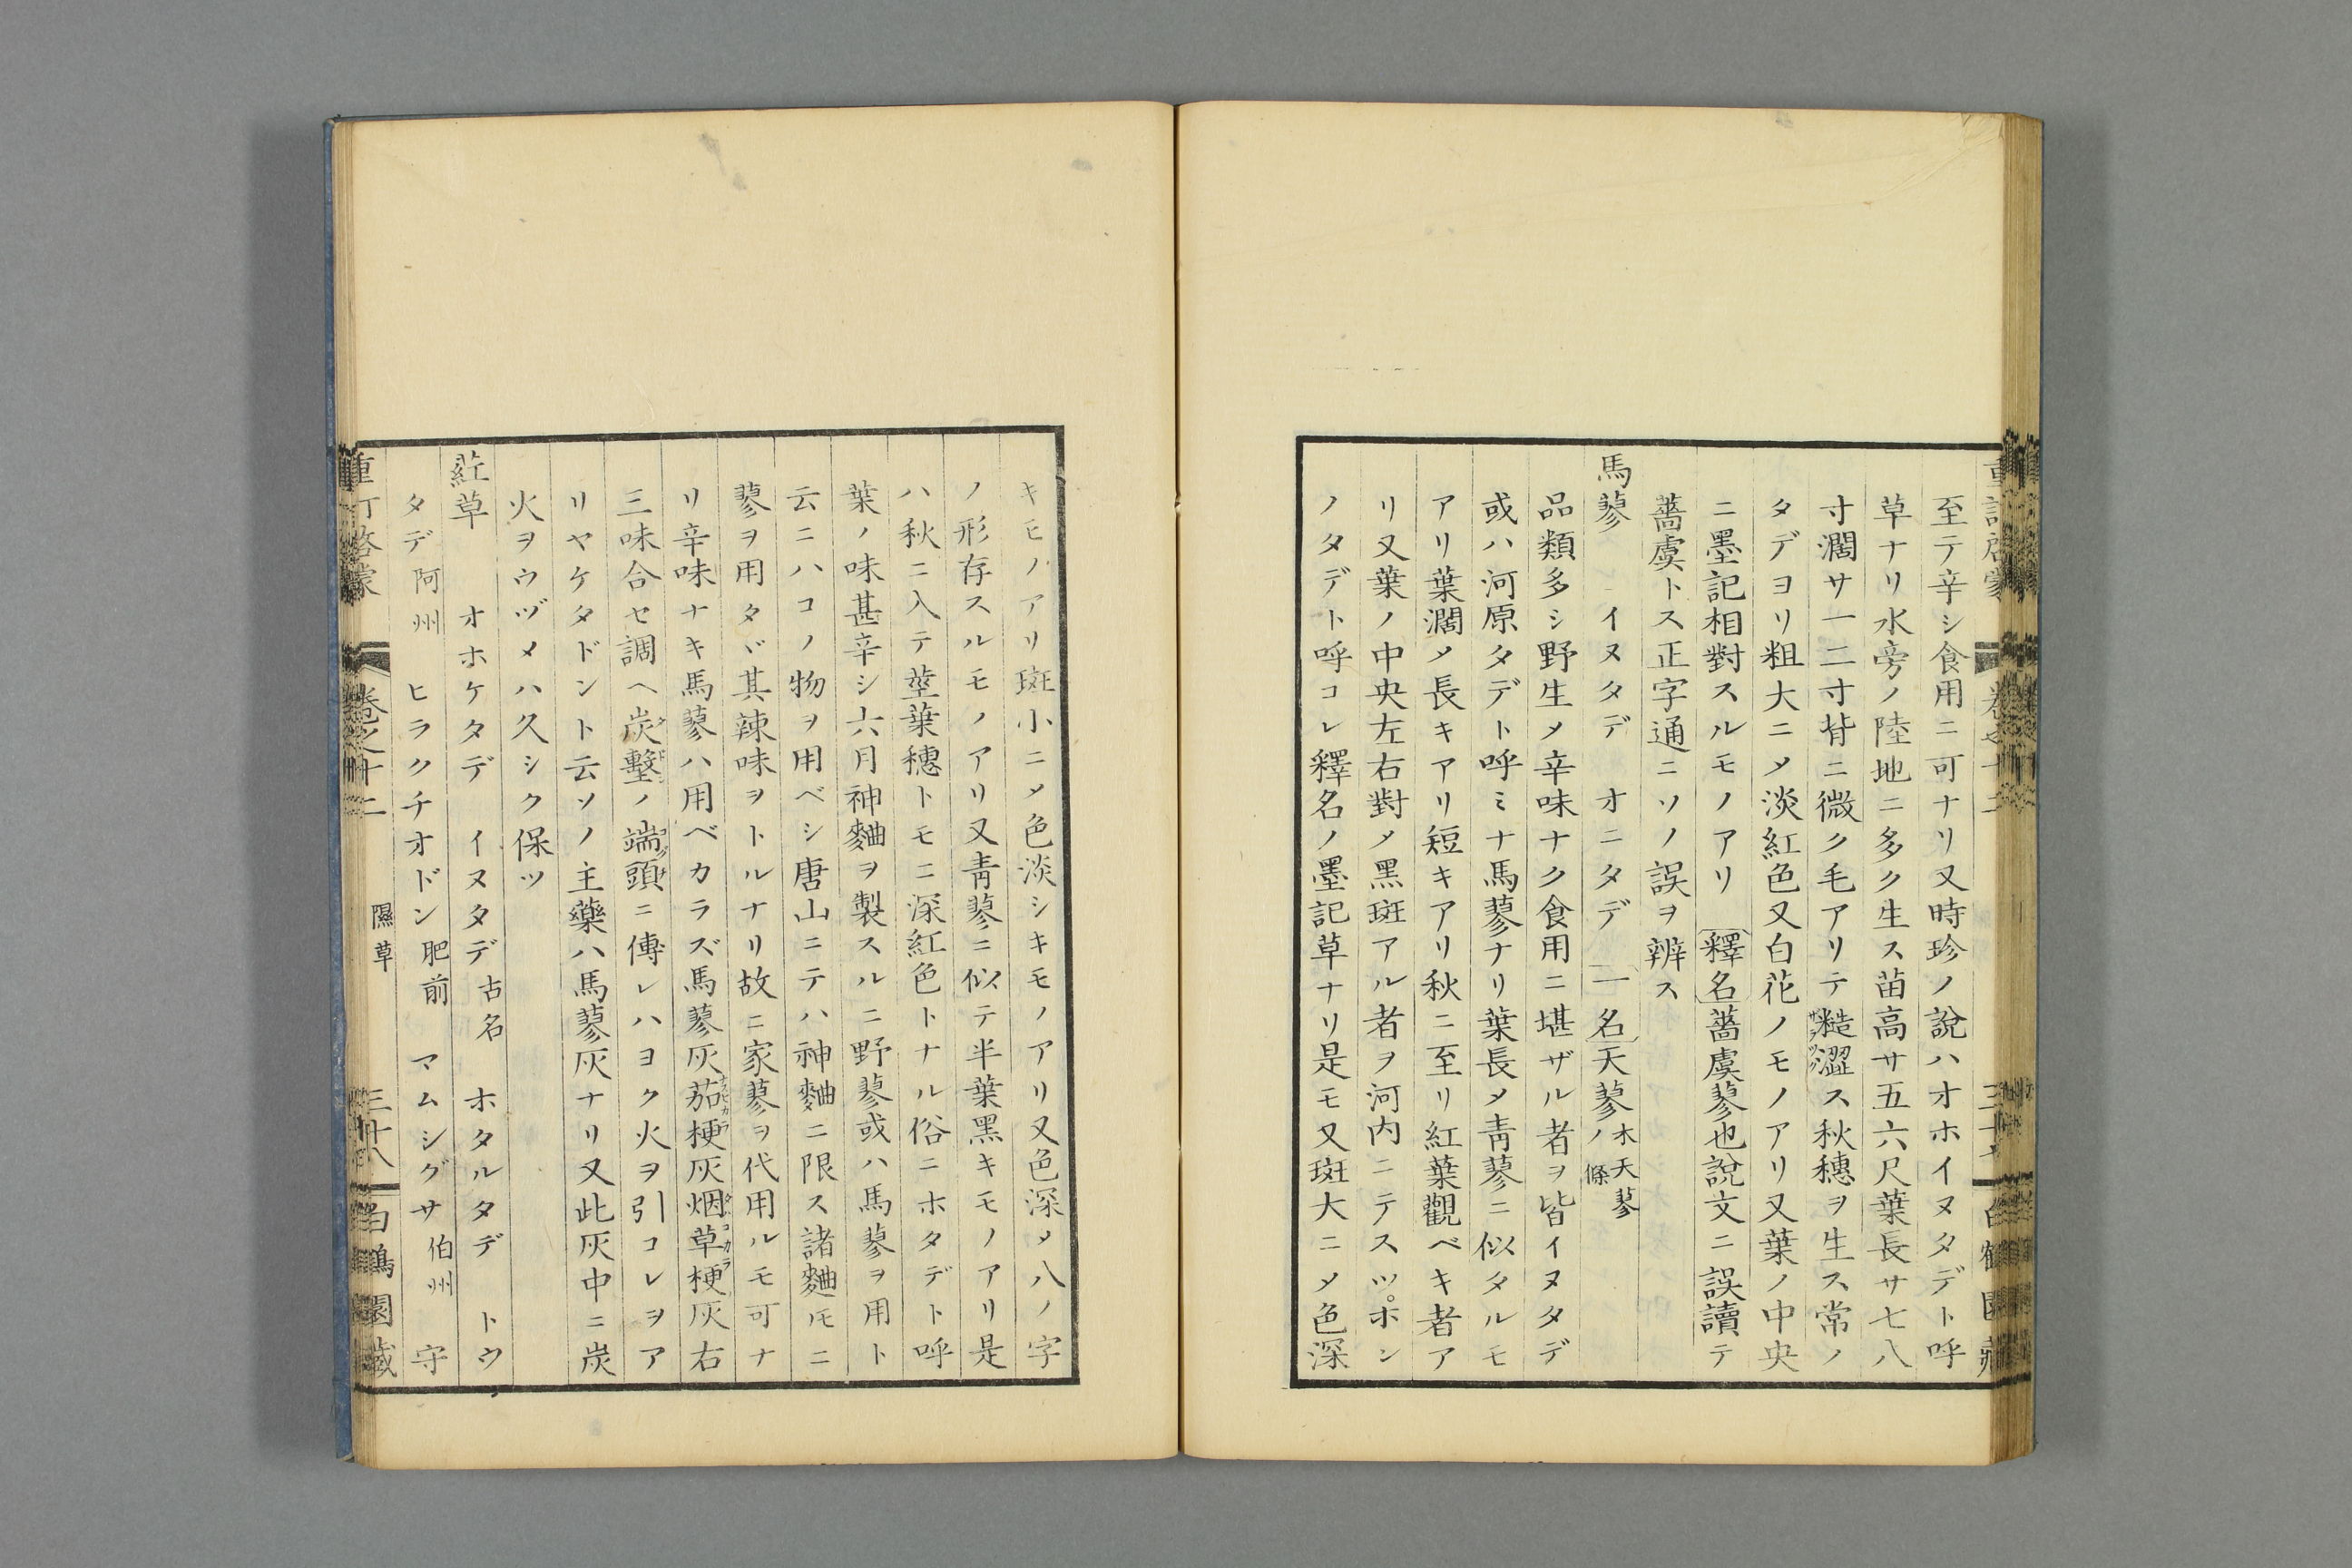 至テ辛シ食用ニ可ナリ又時珍ノ說ハオホイヌタデト呼
草ナリ水旁ノ陸地ニ多ク生ス苗高サ五六尺葉長サ七八
寸濶サ一二寸背ニ微ク毛アリテ糙澀ス秋穗ヲ生ス常ノ
タデヨリ粗大ニメ淡紅色又白花ノモノアリ又葉ノ中央
ニ墨記相對スルモノアリ 釋名 薔虞蓼也說文ニ誤讀テ
薔虞トス正字通ニソノ誤ヲ辨ス
馬蓼 イヌタデ オニタデ 一名 天蓼 木天蓼ノ條
品類多シ野生メ辛味ナク食用ニ堪ザル者ヲ皆イヌタデ
或ハ河原タデト呼ミナ馬蓼ナリ葉長メ靑蓼ニ似タルモ
アリ葉濶メ長キアリ短キアリ秋ニ至リ紅葉觀ベキ者ア
リ又葉ノ中央左右對メ黑斑アル者ヲ河内ニテスツ゚ホン
ノタデト呼コレ釋名ノ墨記草ナリ是モ又斑大ニメ色深
キモノアリ斑小ニメ色淡シキモノアリ又色深メ八ノ字
ノ形存スルモノアリ又靑蓼ニ似テ半葉黑キモノアリ是
ハ秋ニ入テ莖葉穗トモニ深紅色トナル俗ニホタデト呼
葉ノ味甚辛シ六月神麯ヲ製スルニ野蓼或ハ馬蓼ヲ用ト
云ニハコノ物ヲ用ベシ唐山ニテハ神麯ニ限ス諸麯𪜈ニ
蓼ヲ用タヾ其辣味ヲトルナリ故ニ家蓼ヲ代用ルモ可ナ
リ辛味ナキ馬蓼ハ用ベカラズ馬蓼灰茄梗灰烟草梗灰右
三味合セ調ヘ炭墼ノ端頭ニ傅レハヨク火ヲ引コレヲア
リヤケタドント云ソノ主藥ハ馬蓼灰ナリ又此灰中ニ炭
火ヲウヅメハ久シク保ツ
葒草 オホケタデ イヌタデ古名 ホタルタデ トウ
タデ阿州 ヒラクチオドシ肥前 マムシグサ伯州 守
重訂啓蒙 卷之十二 隰草 三十八 白鶴園藏